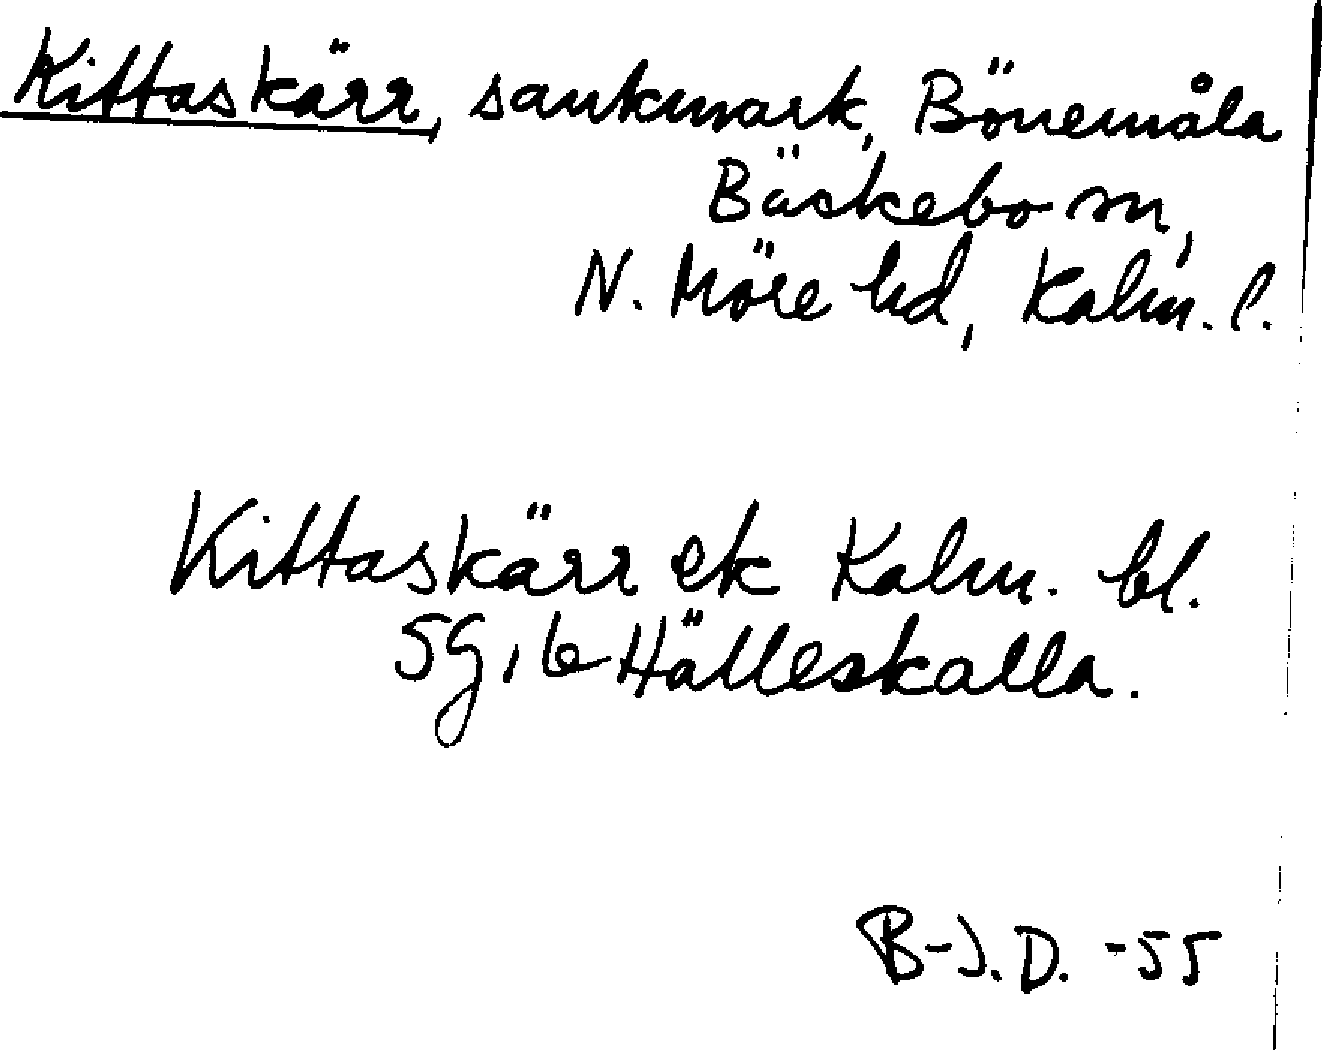 Kittaskärr, sankmark, Bönemåla
Bäckebo sn,
N. Möre hd, Kalm. l.
Kittaskärr ek Kalm. bl.
5G, 6 Hälleskalla.
B-J. D. -55